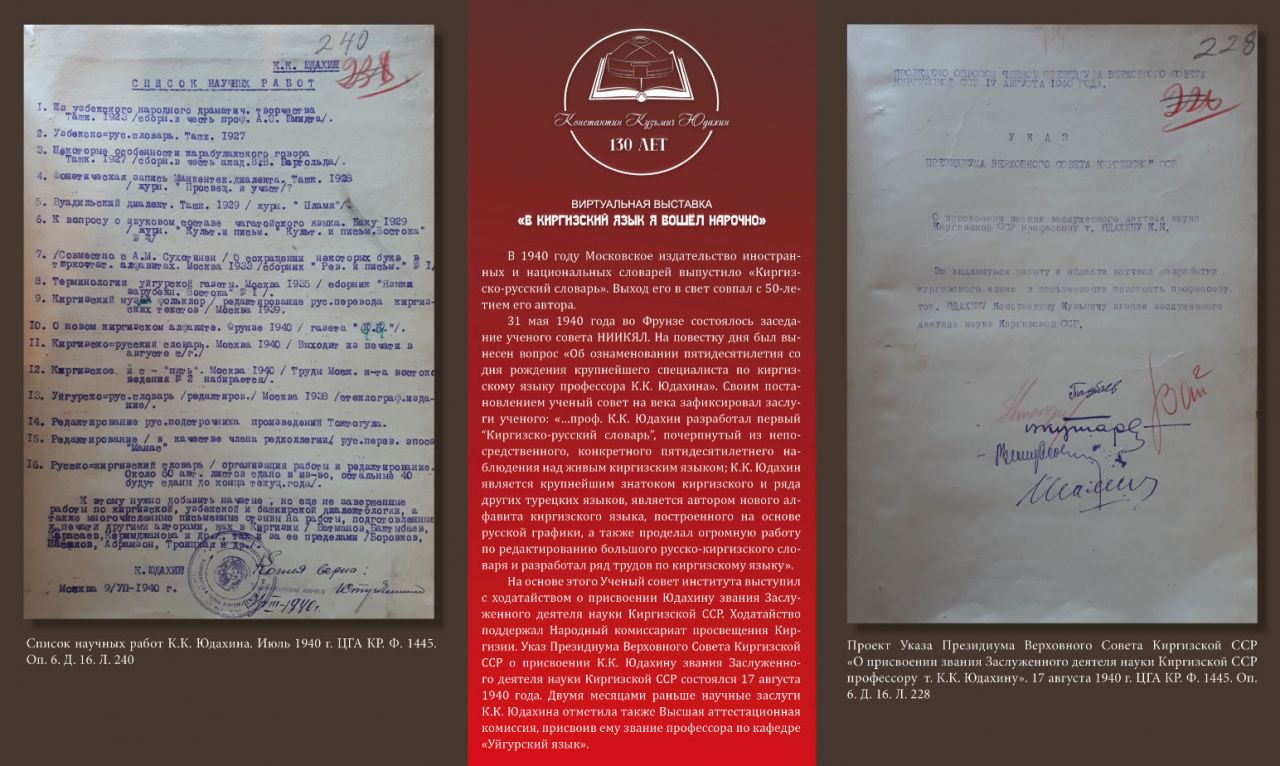 240
К.К. ЮДАХИН
СПИСОК НАУЧНЫХ РАБОТ
1. Из узбекского народного драматич. творчества
Ташк. 1923 /сборн.в честь проф. А.Э. Шмидта/.
2. Узбекско=рус.словарь. Ташк. 1927
3. Некоторые особенности карабулакского говора
Ташк. 1927 /сборн.в честь акад.В.В. Бартольда/.
4. Фонетическая запись Манкентск.диалекта. Ташк. 1928
/ журн. " Просвещ. и участ/?
5. Вуадильский диалект. Ташк. 1929 / журн. " Пламя"/.
6. К вопросу о звуковом составе чагатайского языка. Баку 1929
/ журн. "Культ.и письм. "Культ. и письм.Востока"
№ 4/
7. /Совместно с А.М. Сухотиным / О сокращении некоторых букв в
тюркотат. алфавитах. Москва 1933 /сборник " Рев. и письм." № I/
8. Терминология уйгурской газеты. Москва 1935 / сборник "Языки
зарубежн. Востока" № I /.
9. Киргизский муз. фольклор / редактирование рус.перевода киргиз-
ских текстов / Москва 1939.
10. О новом киргизском алфавите. Фрунзе 1940 / газета
11. Киргизско=русский словарь. Москва 1940 / Выходит из печати в
августе с/г./
12. Киргизское й с - "пять". Москва 1940 / Труды Моск. и-та востоко
ведения № 2 набирается/.
13. Уйгурско=рус.словарь /редактиров./ Москва 1938 /стеклограф.изда-
ние/.
14. Редактирование рус.подстрочника произведений Токтогула.
15. Редактирование / в качестве члена редколлегии/ рус.перев. эпоса
"Манас"
16. Русско=киргизский словарь / организация работы и редактирование.
Около 60 авт. листов сдано в из-во, остальные 40
будут сданы до конца текущ.года/.
К этому нужно добавить начатые, но еще не завершенные
работы по киргизской, узбекской и башкирской диалектологии, а
также многочисленные письменные отзывы на работы, подготовленные
к печати другими авторами, как в Киргизии / Батманов,Бактыбаев,
Карасаев,Керимджанова и др./ так и за ее пределами /Боровков,
Насилов, Абрамзон, Троицкая и др./.
К. ЮДАХИН
Москва 9/УП-1940 г.
Копия верна:
Константин Кузьмич Юдахин
130 ЛЕТ
ВИРТУАЛЬНАЯ ВЫСТАВКА
«В КИРГИЗСКИЙ ЯЗЫК Я ВОШЁЛ НАРОЧНО»
В 1940 году Московское издательство иностран-
ных и национальных словарей выпустило «Киргиз-
ско-русский словарь». Выход его в свет совпал с 50-ле-
тием его автора.
31 мая 1940 года во Фрунзе состоялось заседа-
ние ученого совета НИИКЯЛ. На повестку дня был вы-
несен вопрос «Об ознаменовании пятидесятилетия со
дня рождения крупнейшего специалиста по киргиз-
скому языку профессора К.К. Юдахина». Своим поста-
новлением ученый совет на века зафиксировал заслу-
ги ученого: «...проф. К.К. Юдахин разработал первый
“Киргизско-русский словарь”, почерпнутый из непо-
средственного, конкретного пятидесятилетнего на-
блюдения над живым киргизским языком; К.К. Юдахин
является крупнейшим знатоком киргизского и ряда
других турецких языков, является автором нового ал-
фавита киргизского языка, построенного на основе
русской графики, а также проделал огромную работу
по редактированию большого русско-киргизского сло-
варя и разработал ряд трудов по киргизскому языку».
На основе этого Ученый совет института выступил
с ходатайством о присвоении Юдахину звания Заслу-
женного деятеля науки Киргизской ССР. Ходатайство
поддержал Народный комиссариат просвещения Кир-
гизии. Указ Президиума Верховного Совета Киргизской
ССР о присвоении К.К. Юдахину звания Заслуженно-
го деятеля науки Киргизской ССР состоялся 17 августа
1940 года. Двумя месяцами раньше научные заслуги
К.К. Юдахина отметила также Высшая аттестационная
комиссия, присвоив ему звание профессора по кафедре
«Уйгурский язык».
228
226
ПРОВЕДЕНО ОПРОСОМ ЧЛЕНОВ ПРЕЗИДИУМА ВЕРХОВНОГО СОВЕТА
КИРГИЗСКОЙ ССР 17 АВГУСТА 1940 ГОДА.
УКАЗ
ПРЕЗИДИУМА ВЕРХОВНОГО СОВЕТА КИРГИЗСКОЙ ССР
О присвоении звания заслуженного деятеля науки
Киргизской ССР профессору т. ЮДАХИНУ К.К.
За выдающуюся работу в области научной разработки
киргизского языка и письменности присвоить профессору
тов. ЮДАХИНУ Константину Кузьмичу звание заслуженного
деятеля науки Киргизской ССР.
Список научных работ К.К. Юдахина. Июль 1940 г. ЦГА КР. Ф. 1445.
Оп. 6. Д. 16. Л. 240
Проект Указа Президиума Верховного Совета Киргизской ССР
«О присвоении звания Заслуженного деятеля науки Киргизской ССР
профессору т. К.К. Юдахину». 17 августа 1940 г. ЦГА КР. Ф. 1445. Оп.
6. Д. 16. Л. 228